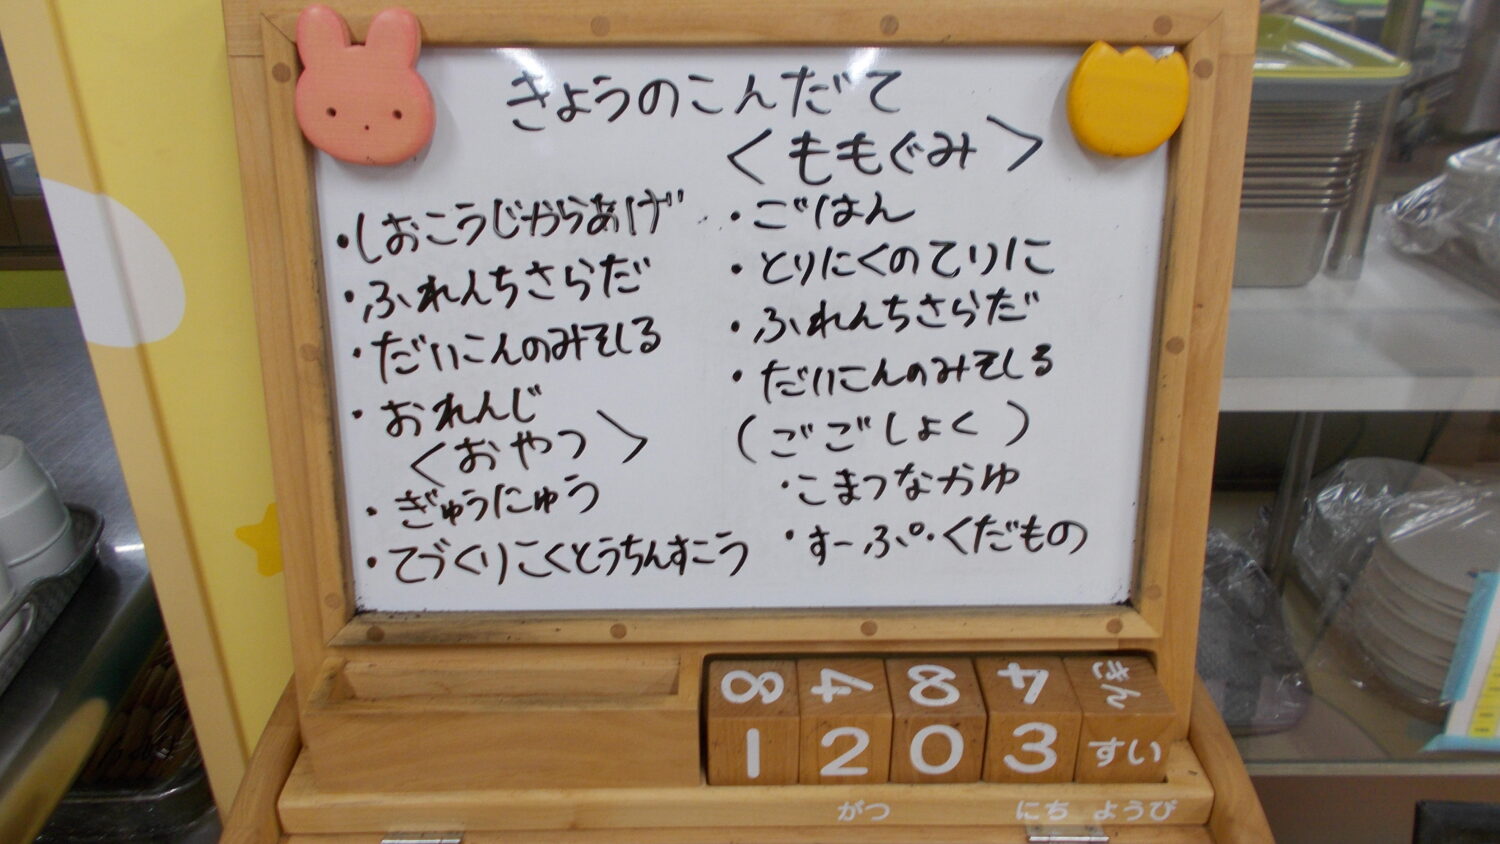 きょうのこんだて
・しおこうじからあげ
・ふれんちさらだ
・だいこんのみそしる
・おれんじ
＜おやつ＞
・ぎゅうにゅう
・てづくりこくとうちんすこう
＜ももぐみ＞
・ごはん
・とりにくのてりに
・ふれんちさらだ
・だいこんのみそしる
（ごごしょく）
・こまつなかゆ
・すーぷ・くだもの
8 4 8 4 きん
1 2 0 3 すい
がつ にち ようび